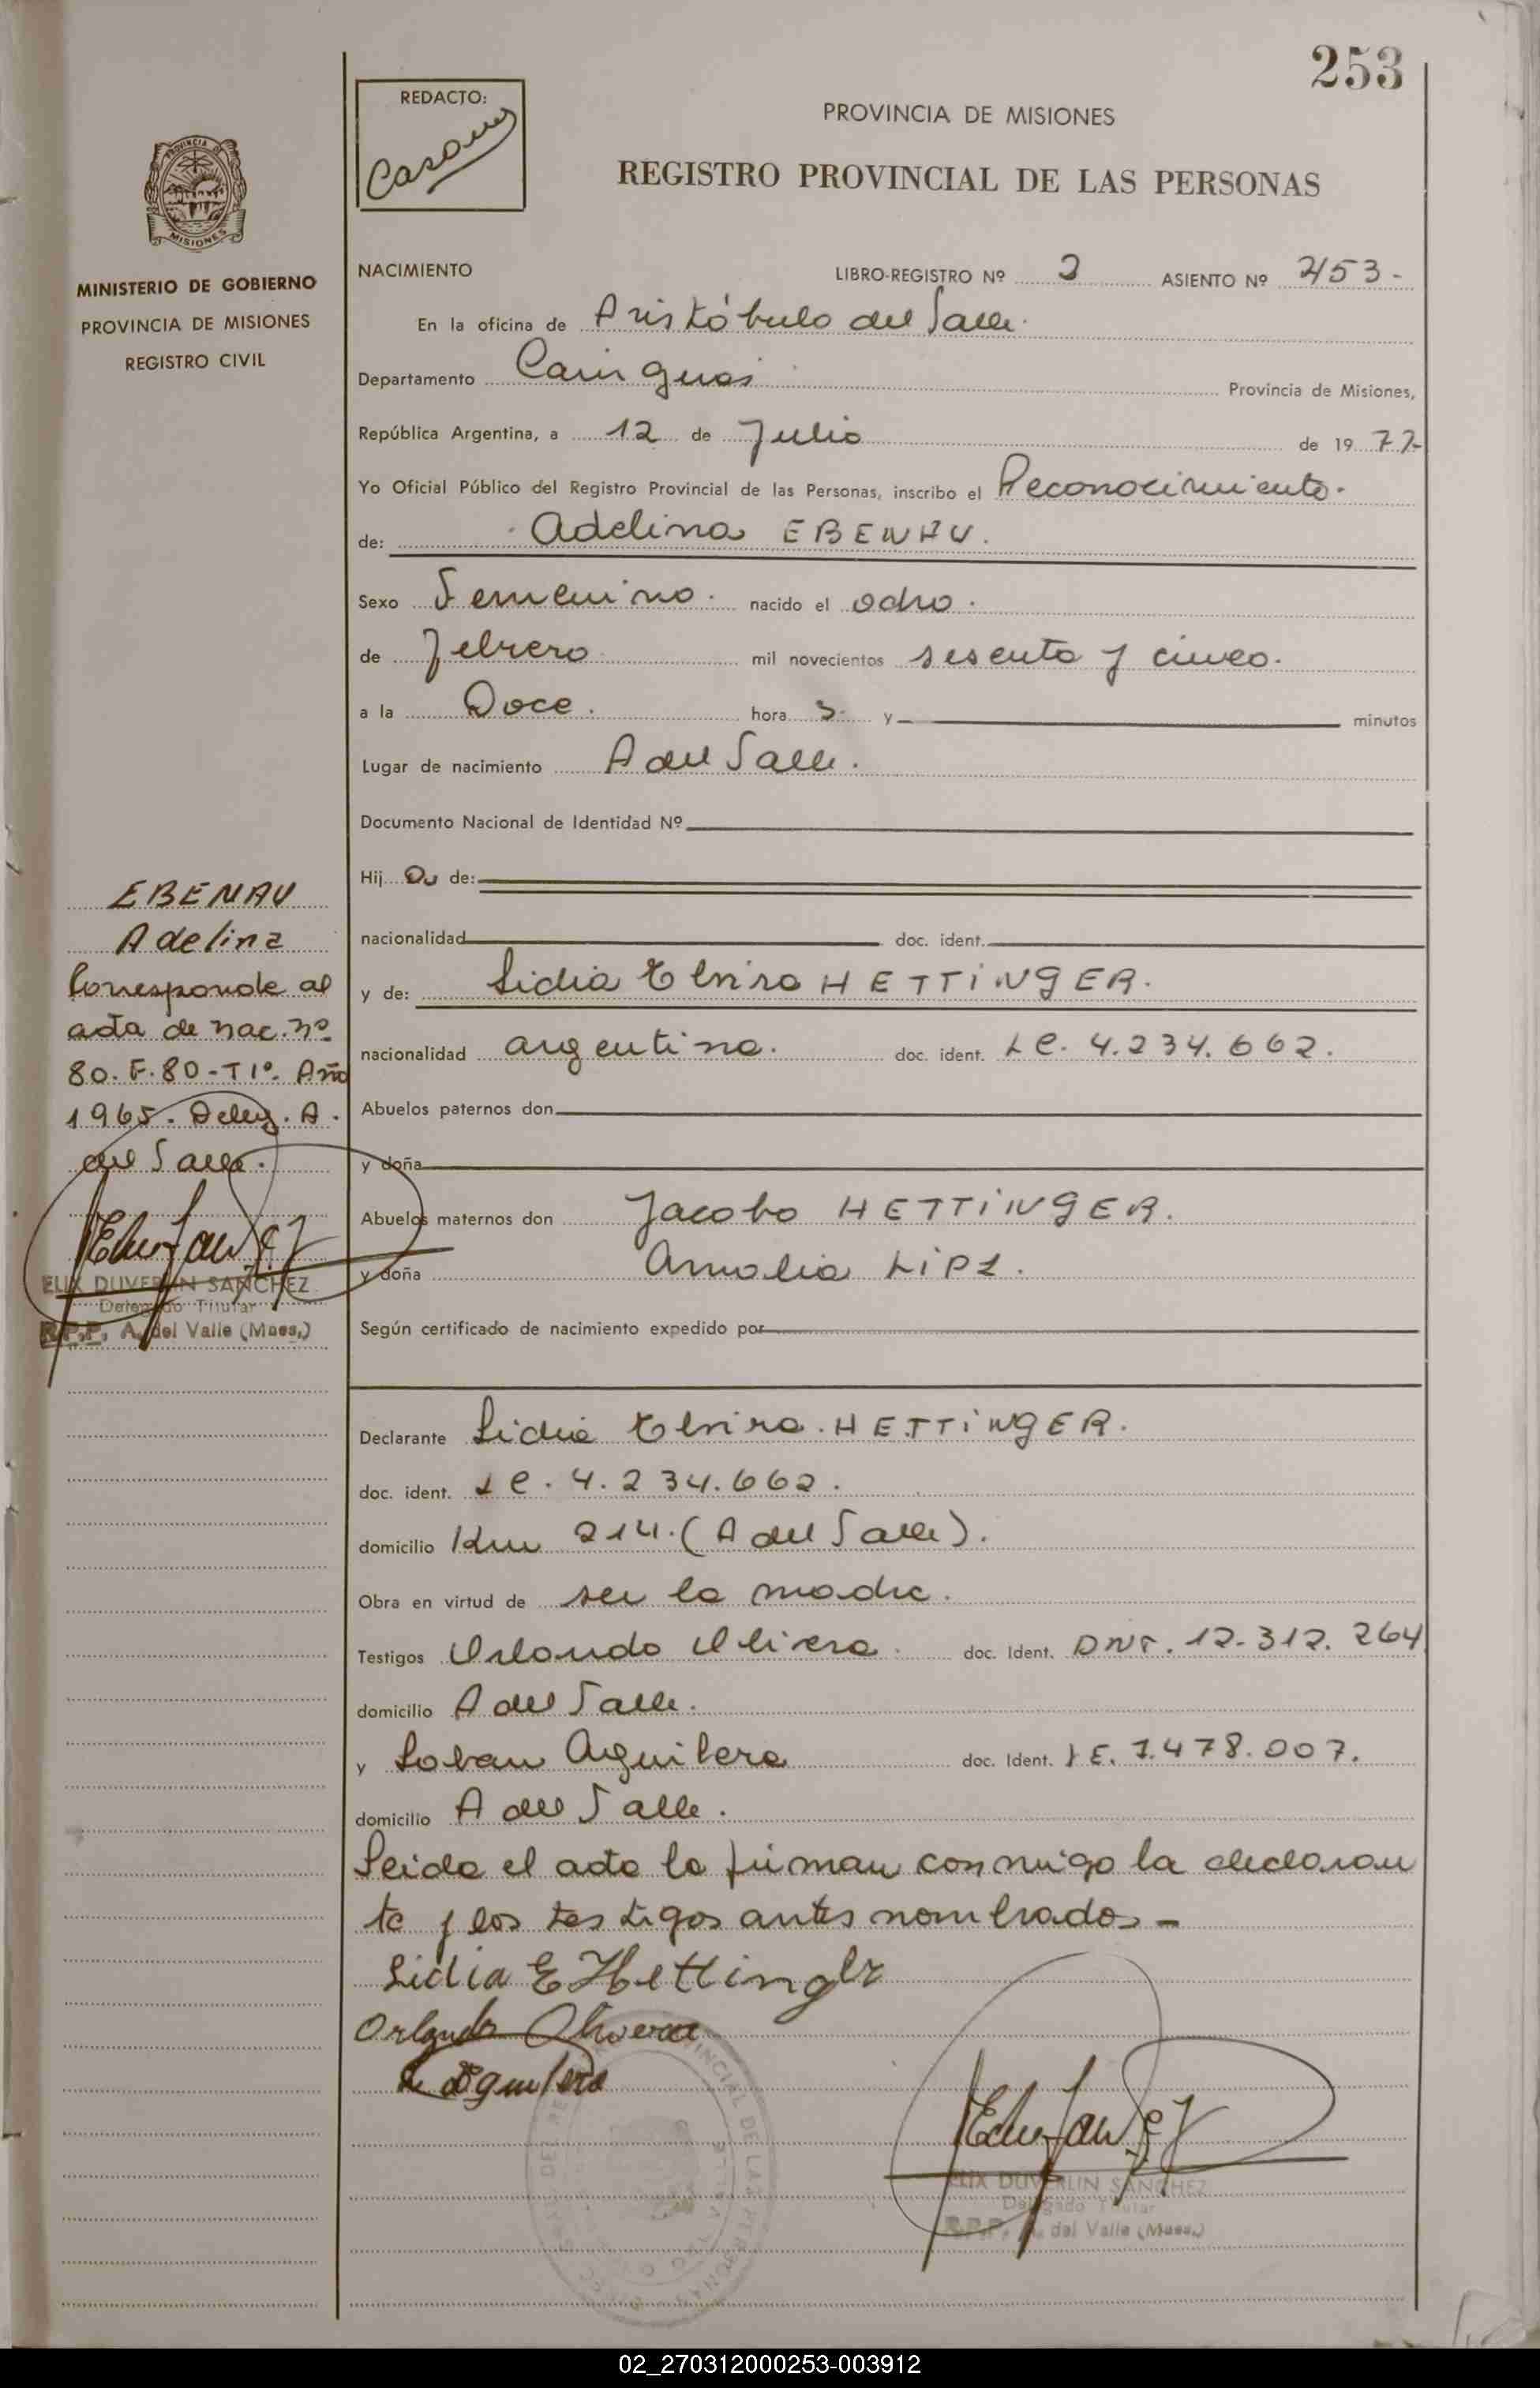 253
REDACTO:
PROVINCIA DE MISIONES
REGISTRO PROVINCIAL DE LAS PERSONAS
PROVINCIA
MISIONES
MINISTERIO DE GOBIERNO
PROVINCIA DE MISIONES
REGISTRO CIVIL
NACIMIENTO LIBRO-REGISTRO Nº 2 ASIENTO Nº 253-
En la oficina de Aristóbulo del Valle.
Departamento Cainguás Provincia de Misiones,
República Argentina, a 12 de Julio de 1977-
Yo Oficial Público del Registro Provincial de las Personas, inscribo el Reconocimiento.
de: Adelina EBENAU.
Sexo Femenino. nacido el ocho.
de febrero mil novecientos sesenta y cinco.
a la Doce. hora s. y minutos
Lugar de nacimiento A del Valle.
Documento Nacional de Identidad Nº
Hij a de:
nacionalidad doc. ident.
y de: Lidia Elvira HETTINGER.
nacionalidad argentina. doc. ident. LC. 4.234.662.
Abuelos paternos don
y doña
Abuelos maternos don Jacobo HETTINGER.
y doña Amalia LIPS.
Según certificado de nacimiento expedido por
EBENAU
Adelina
Corresponde al
acta de nac. nº
80. F. 80 - T 1º. Año
1965. Deleg. A.
del Valle.
ELIX DUVERLIN SANCHEZ
Delegado Titular
R.P.P. A. del Valle (Mnes.)
Declarante Lidia Elvira. HETTINGER.
doc. ident. LC. 4.234.662.
domicilio Km 214. (A del Valle).
Obra en virtud de ser la madre.
Testigos Orlando Olivera. doc. Ident. DNI. 12.312.264
domicilio A del Valle.
y Aguilera doc. Ident. LE. 7.478.007.
domicilio A del Valle.
Leida el acta la firman conmigo la declaran
te y los testigos antes nombrados -
Lidia E Hettinger
Orlando Olivera
Aguilera
ELIX DUVERLIN SANCHEZ
Delegado Titular
R.P.P. A. del Valle (Mnes.)
02_270312000253-003912